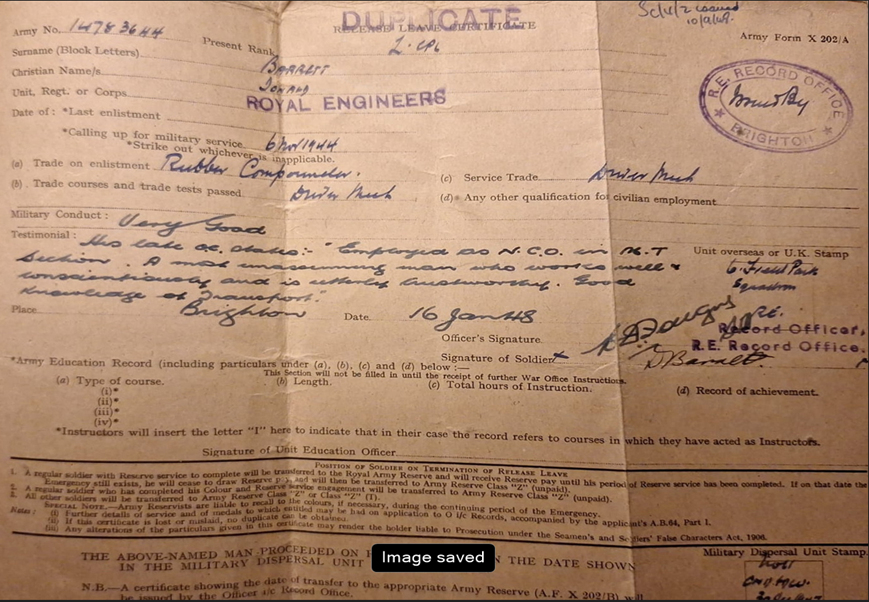 DUPLICATE
RELEASE LEAVE CERTIFICATE
10/9/48.
Army Form X 202/A
Army No. 14783644 Present Rank L. CPL
Surname (Block Letters) BARRETT
Christian Name/s DONALD
Unit, Regt. or Corps ROYAL ENGINEERS
R.E. RECORD OFFICE
BRIGHTON
Date of : *Last enlistment
*Calling up for military service 6 Nov 1944
*Strike out whichever is inapplicable.
(a) Trade on enlistment Rubber Compounder. (c) Service Trade Driver Mech
(b) Trade courses and trade tests passed Driver Mech (d)* Any other qualification for civilian employment
Military Conduct : Very Good
Testimonial : His late o.c. states:- "Employed as N.C.O. in M.T
Section. A most unassuming man who works well &
conscientiously and is utterly trustworthy. Good
knowledge of Transport."
Unit overseas or U.K. Stamp
6. Field Park
Squadron
RE.
Place Brighton Date 16 Jan 48
Officer's Signature
Record Officer,
R.E. Record Office.
Signature of Soldier D Barrett.
*Army Education Record (including particulars under (a), (b), (c) and (d) below :—
This Section will not be filled in until the receipt of further War Office Instructions.
(a) Type of course. (b) Length. (c) Total hours of Instruction. (d) Record of achievement.
(i)*
(ii)*
(iii)*
(iv)*
*Instructors will insert the letter "I" here to indicate that in their case the record refers to courses in which they have acted as Instructors.
Signature of Unit Education Officer
POSITION OF SOLDIER ON TERMINATION OF RELEASE LEAVE
1. A regular soldier with Reserve service to complete will be transferred to the Royal Army Reserve and will receive Reserve pay until his period of Reserve service has been completed. If on that date the
Emergency still exists, he will cease to draw Reserve pay, and will then be transferred to Army Reserve Class "Z" (unpaid).
2. A regular soldier who has completed his Colour and Reserve service engagement will be transferred to Army Reserve Class "Z" (unpaid).
3. All other soldiers will be transferred to Army Reserve Class "Z" or Class "Z" (T).
SPECIAL NOTE.—Army Reservists are liable to recall to the colours, if necessary, during the continuing period of the Emergency.
Notes : (i) Further details of service and of medals to which entitled may be had on application to O i/c Records, accompanied by the applicant's A.B.64, Part I.
(ii) If this certificate is lost or mislaid, no duplicate can be obtained.
(iii) Any alterations of the particulars given in this certificate may render the holder liable to Prosecution under the Seamen's and Soldiers' False Characters Act, 1906.
THE ABOVE-NAMED MAN PROCEEDED ON
IN THE MILITARY DISPERSAL UNIT N THE DATE SHOWN
Military Dispersal Unit Stamp.
Image saved
N.B.—A certificate showing the date of transfer to the appropriate Army Reserve (A.F. X 202/B) will
be issued by the Officer i/c Record Office.